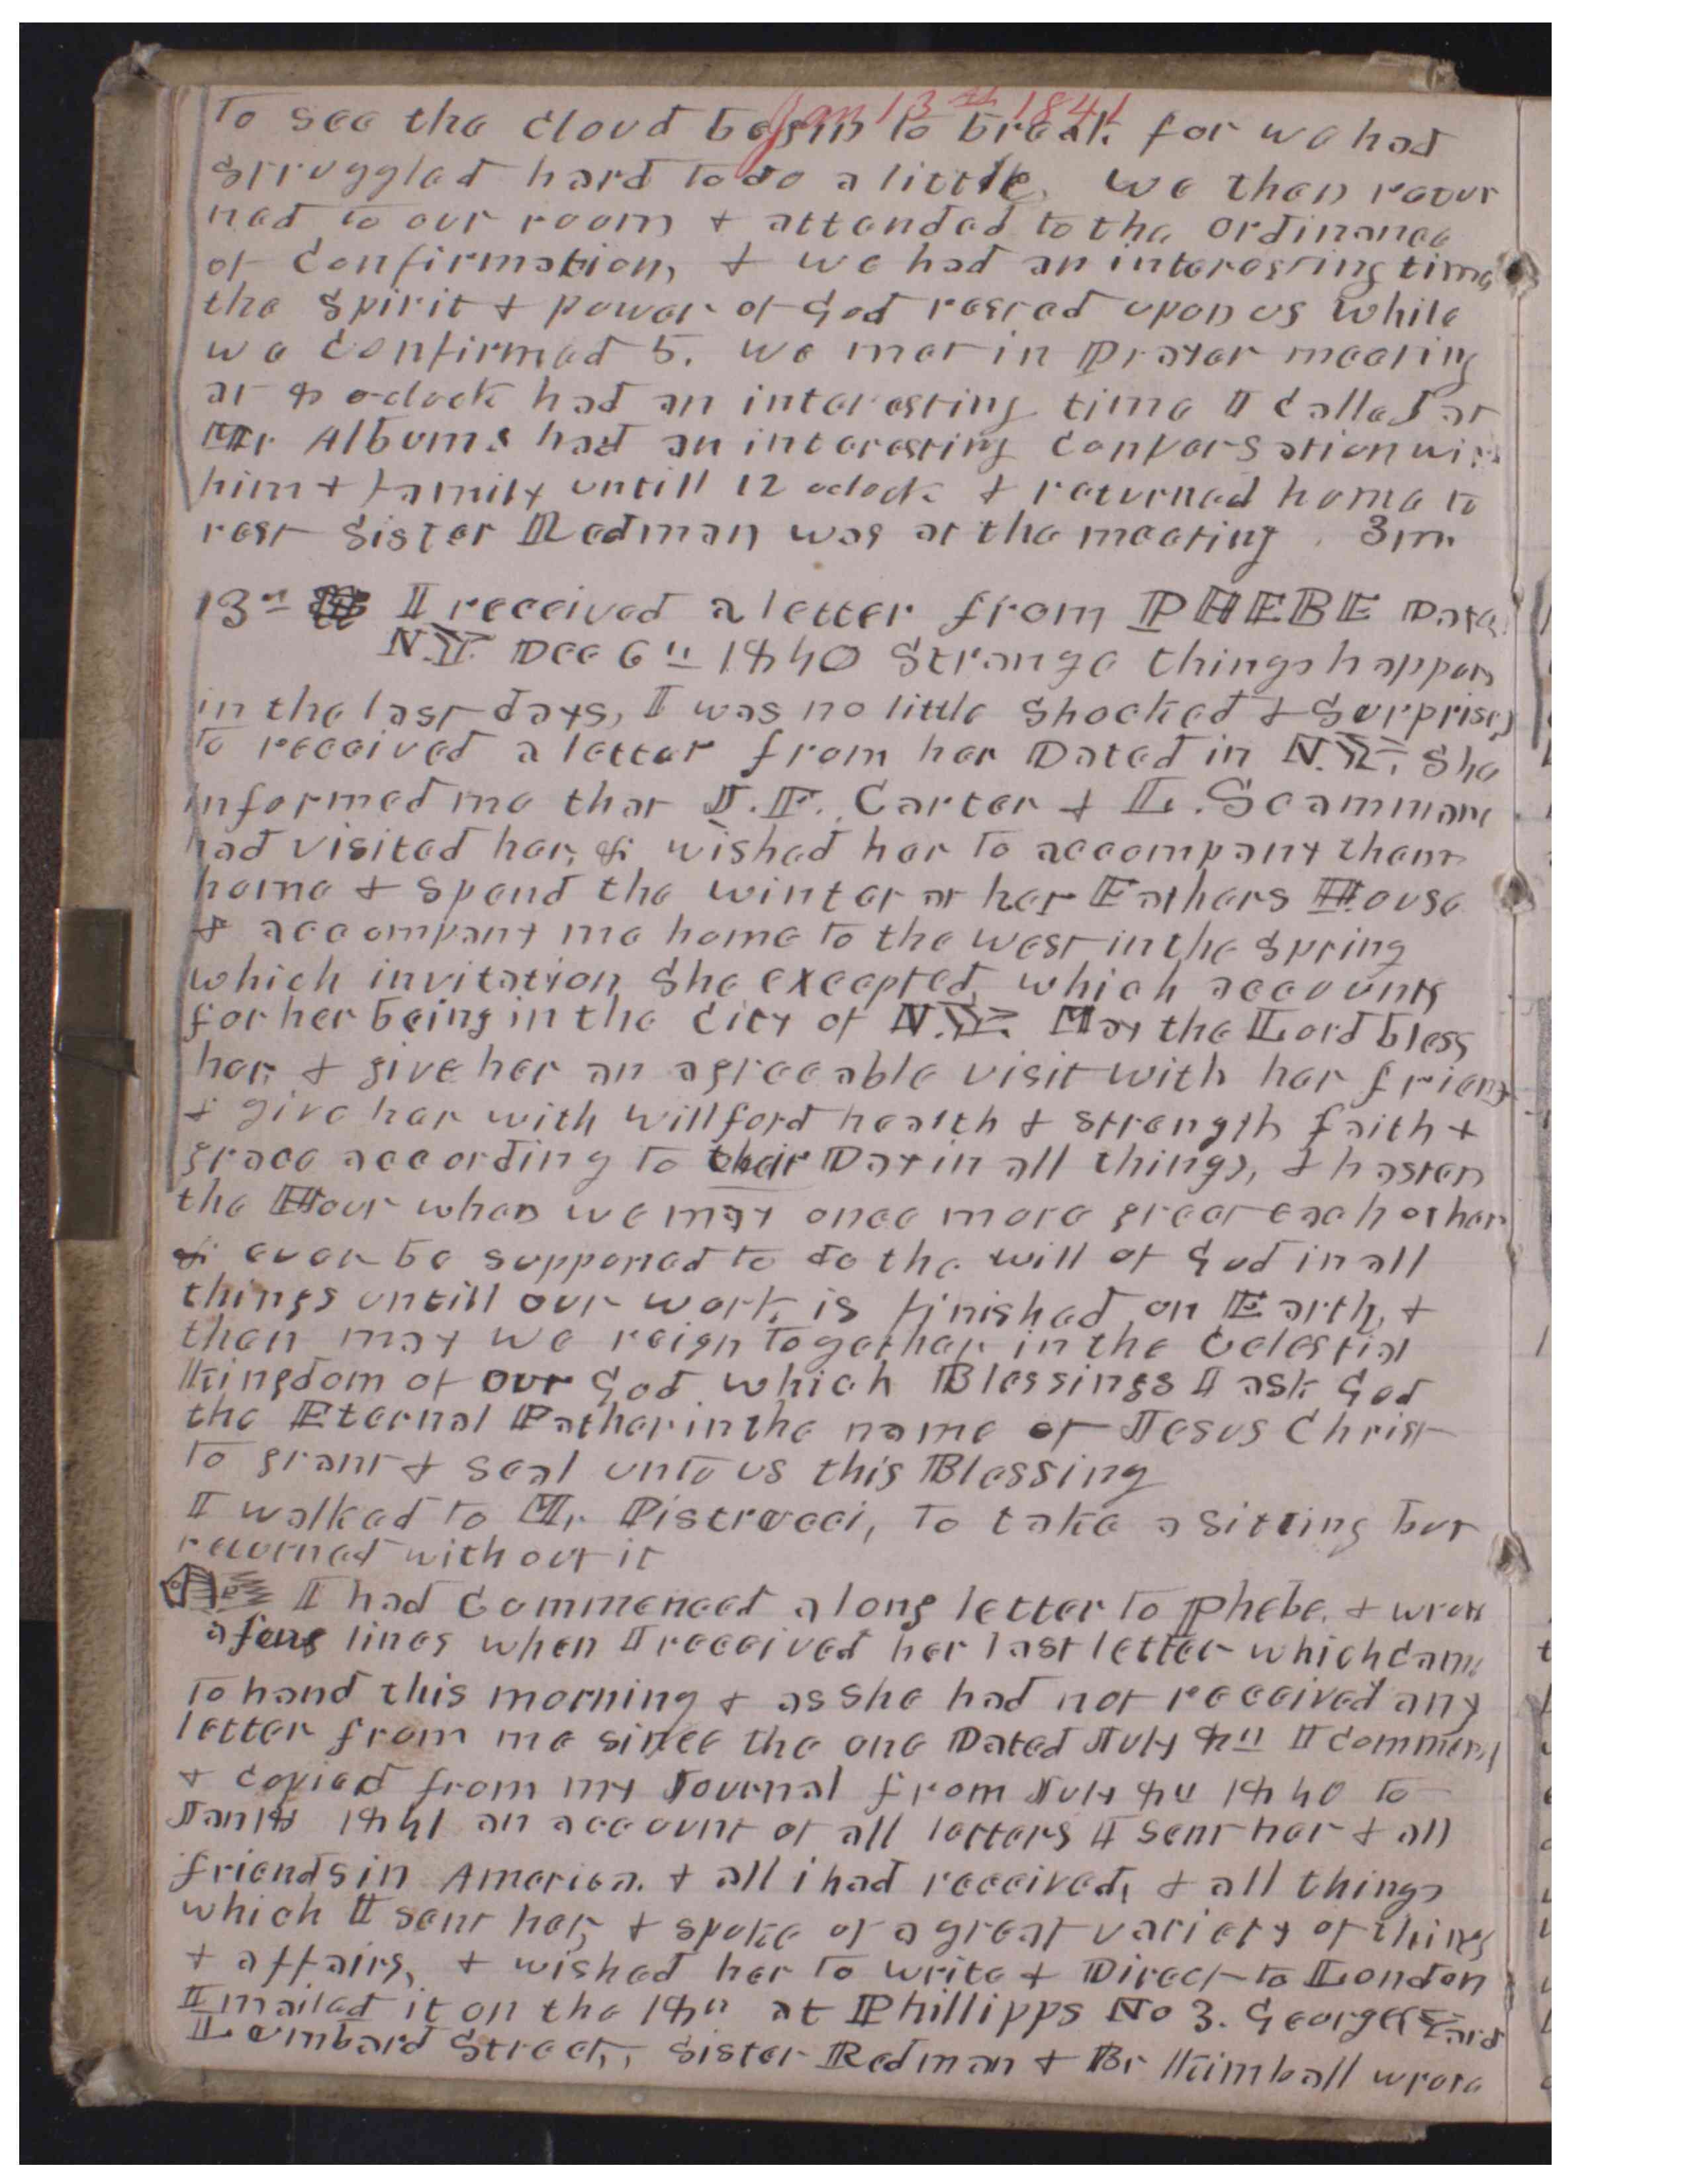 Jan 13th 1841
to see the cloud begin to break for we had
struggled hard to do a little. We then retur
ned to our room & attended to the ordinance
of Confirmation, & we had an interesting time
the spirit & power of God rested upon us while
we Confirmed 5. We met in Prayer meeting
at 8 o-clock had an interesting time I Called at
Mr Albums had an interesting Conversation with
him & family untill 12 oclock & returned home to
rest Sister Redman was at the meeting. 3 m
13th I received a letter from PHEBE Date
N.Y. Dec 6th 1840 Strange things happen
in the last days, I was no little Shocked & Surprised
to received a letter from her Dated in N.Y. She
informed me that I.F. Carter & L. Scammans
had visited her, & wished her to accompany them
home & Spend the winter at her Fathers House
& accompany me home to the west in the Spring
which invitation She excepted, which accounts
for her being in the City of N.Y. May the Lord bless
her, & give her an agreeable visit with her friends
& give her with Willford health & strength faith &
grace according to their Day in all things, & hasten
the Hour when we may once more greet each other
& ever be supported to do the will of God in all
things untill our work is finished on Earth, &
then may we reign together in the Celestial
Kingdom of our God which Blessings I ask God
the Eternal Father in the name of Jesus Christ
to grant & seal unto us this Blessing
I walked to Mr Pistrucci, to take a sitting but
returned without it
I had Commenced a long letter to Phebe, & wrote
a few lines when I received her last letter which came
to hand this morning & as she had not received any
letter from me since the one Dated July 8th I commenced
& copied from my Journal from July 8th 1840 to
Jan 18 1841 an account of all letters I sent her & all
friends in America. & all i had received, & all things
which I sent her, & spoke of a great variety of things
& affairs, & wished her to write & Direct to London
I mailed it on the 18th at Phillipps No 3. George Yard
Lombard Street, Sister Redman & Br Kimball wrote